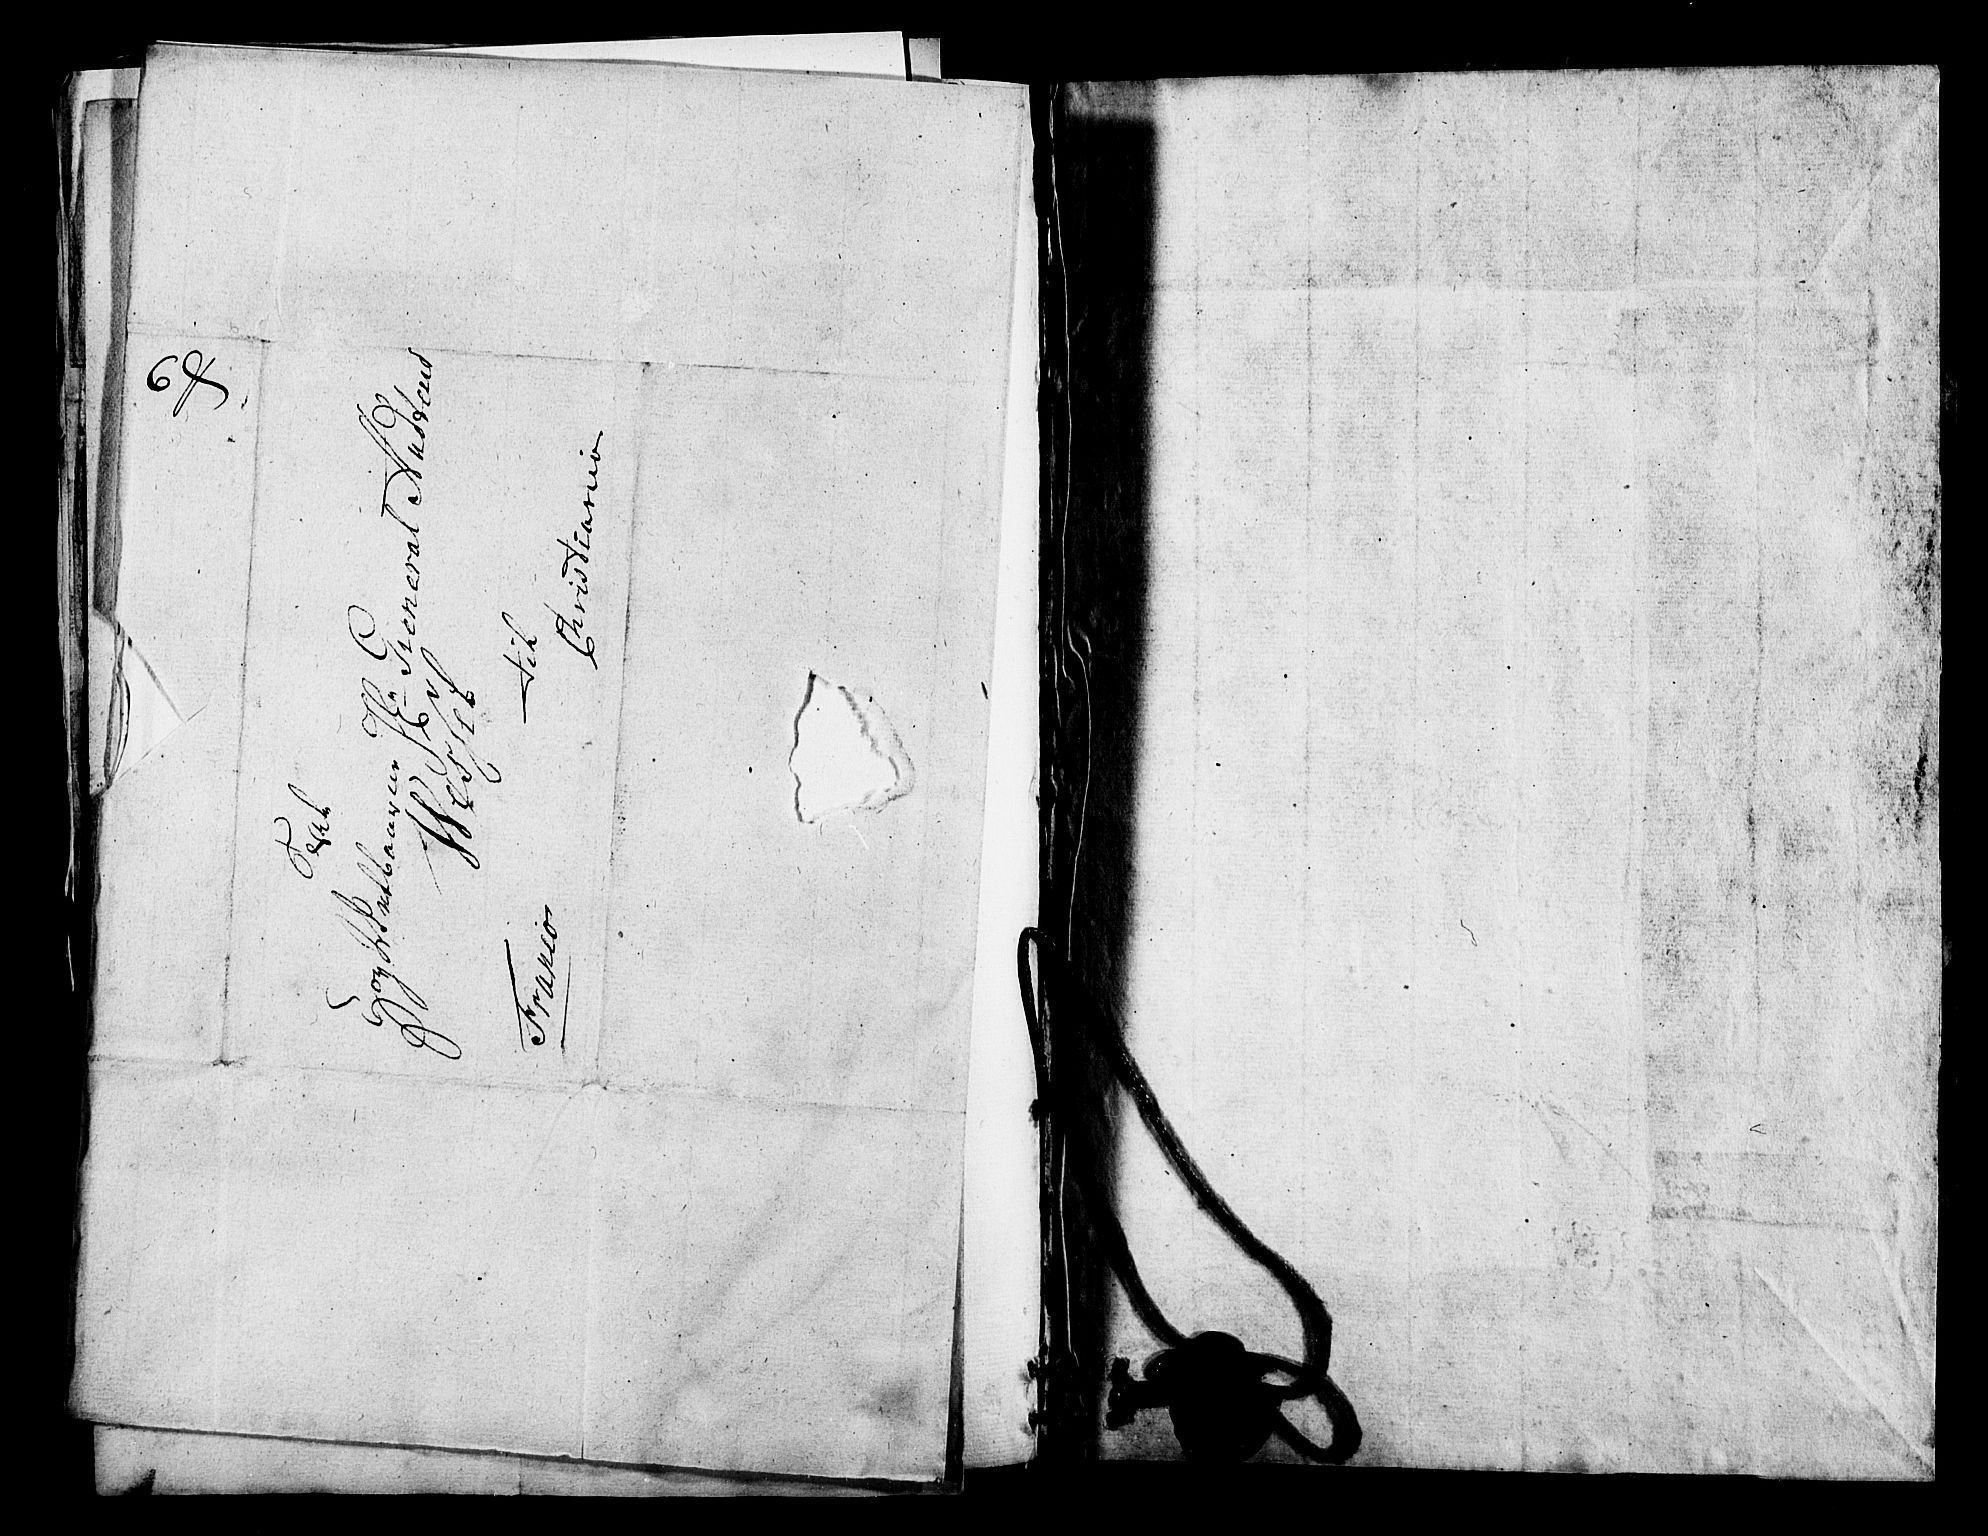 6 ß
Høy Velbaarne Hr General Auditeur
Wessel
til
Christiania
Franco